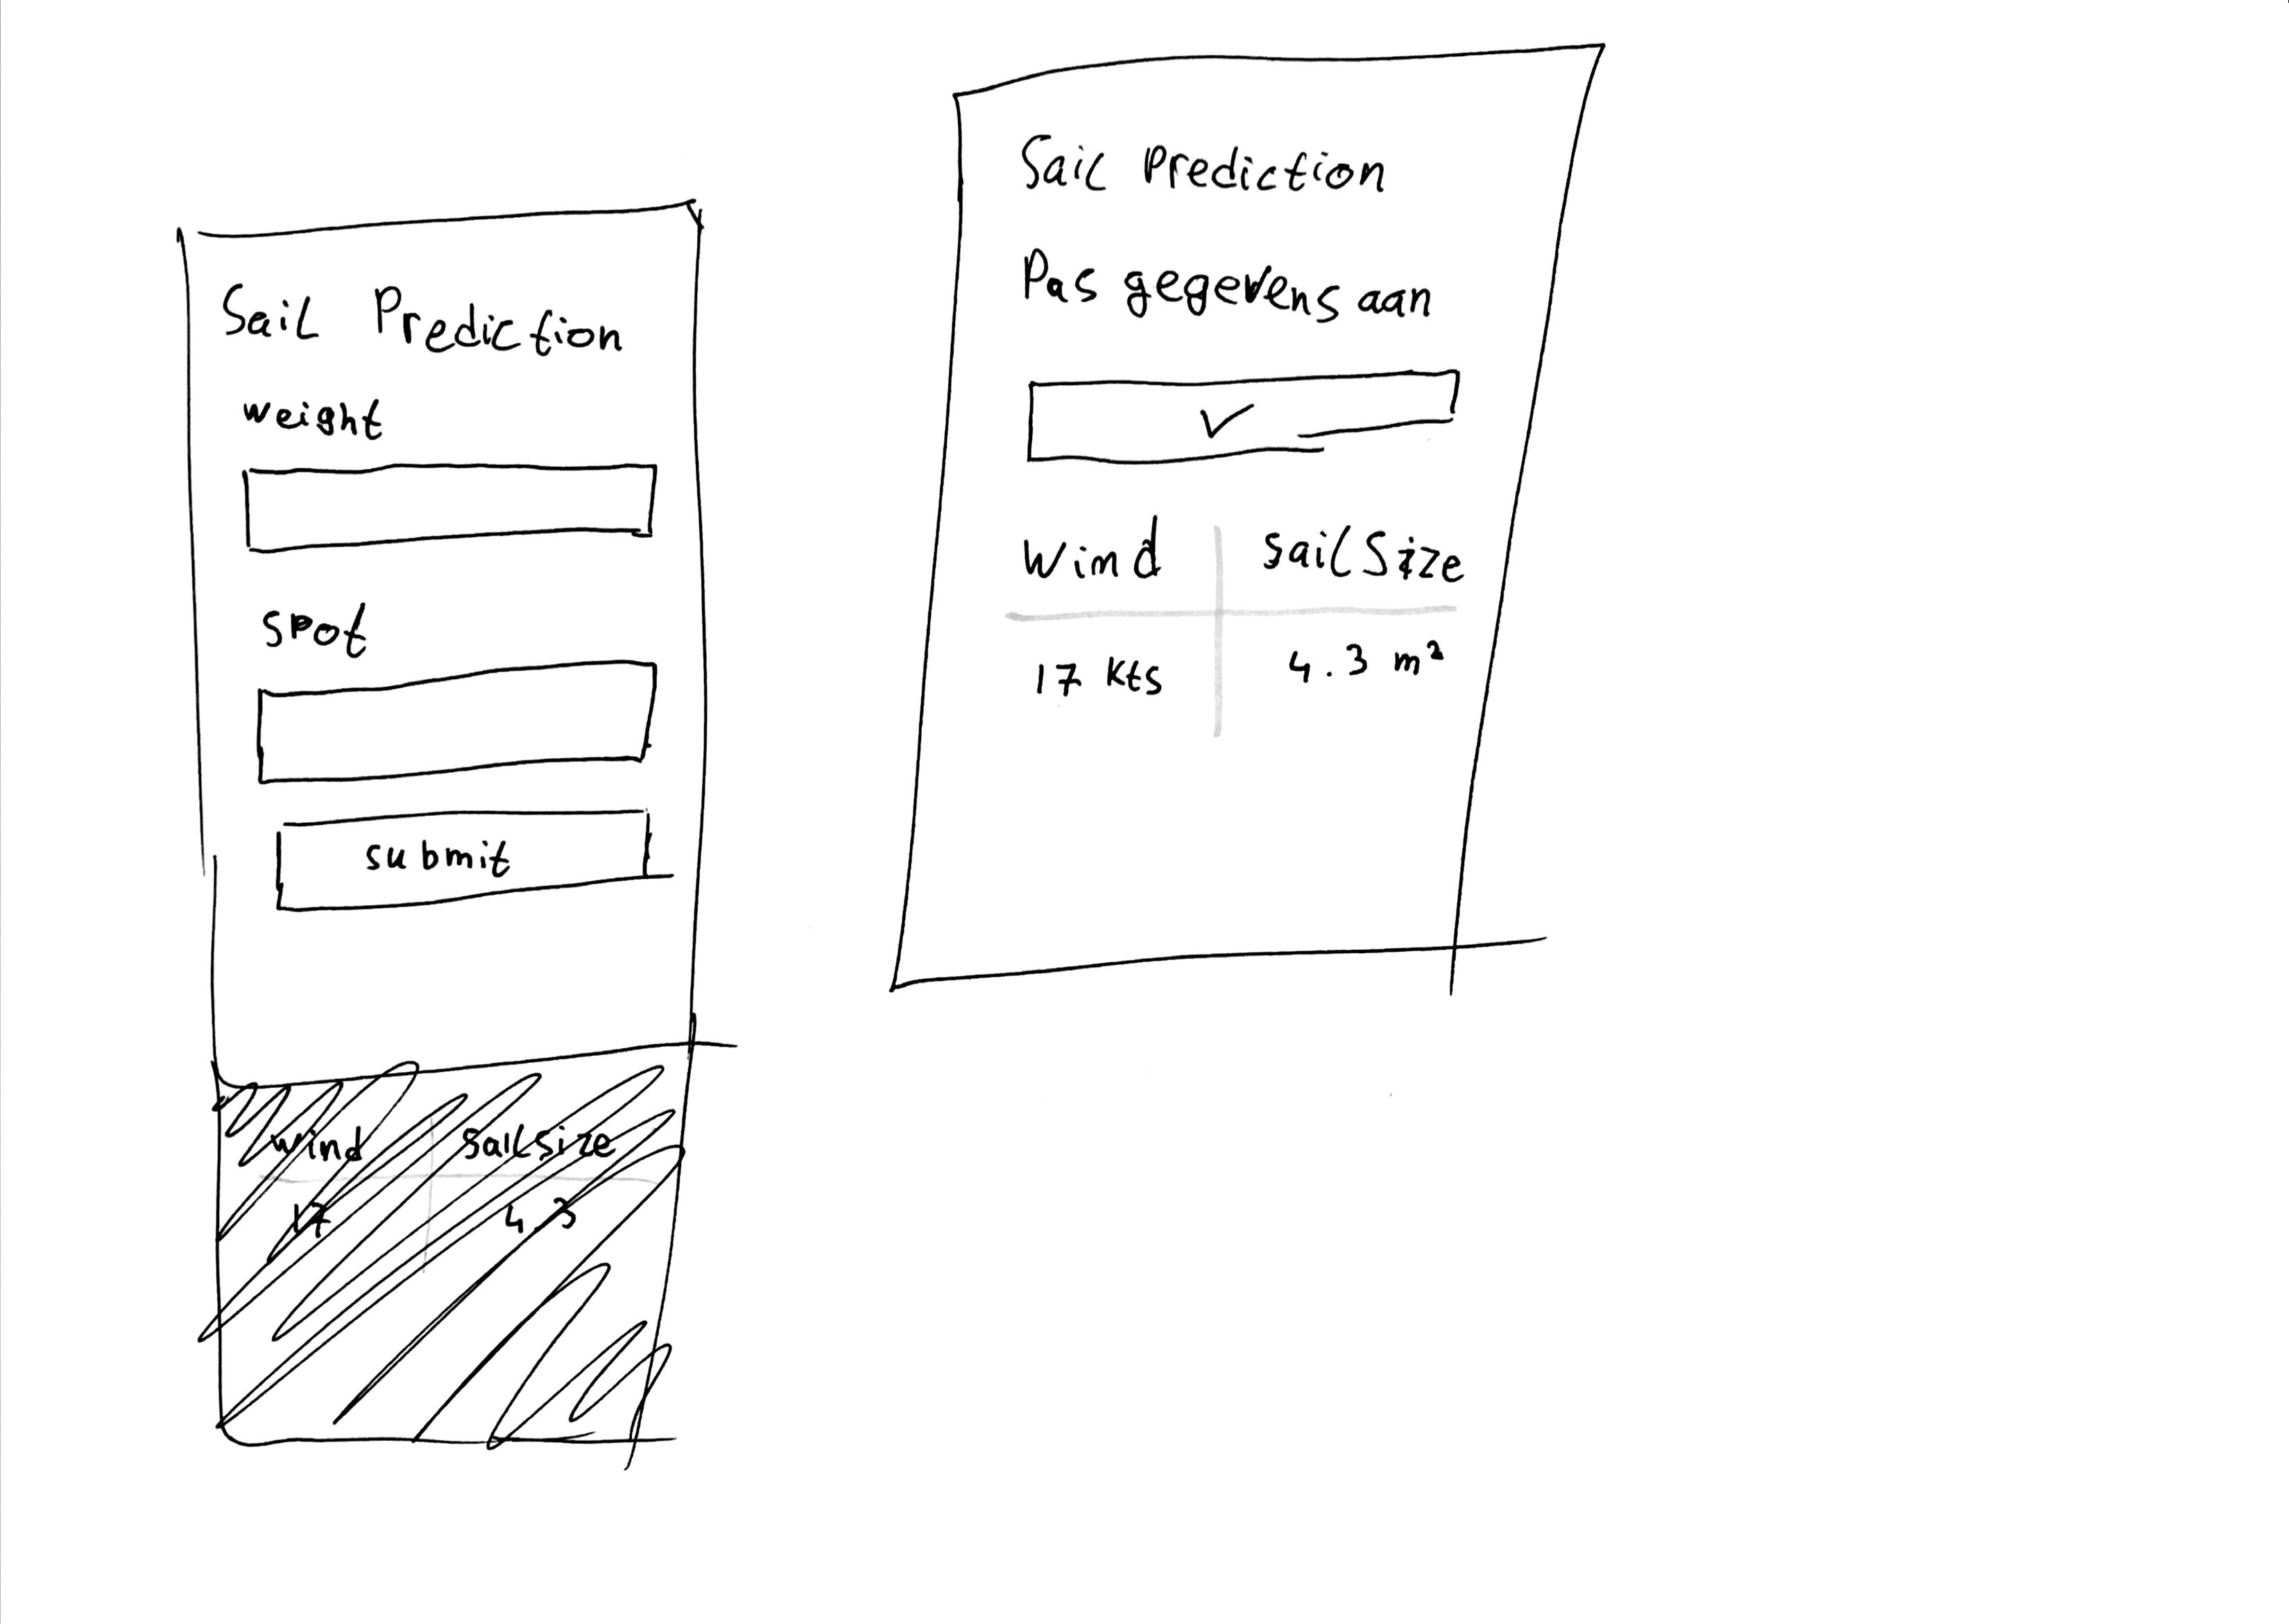 Sail Prediction
weight
spot
submit
wind sailsize
17 4.3
Sail Prediction
Pas gegevens aan
✓
Wind sailSize
17 kts 4.3 m²